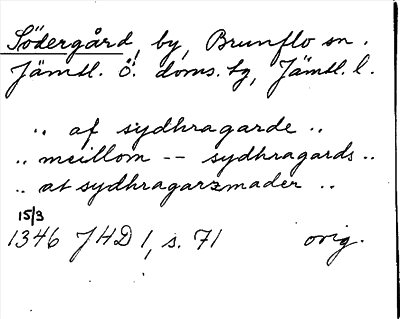 Södergård, by, Brunflo sn.
Jämtl. Ö. doms. tg, Jämtl. l.
.. af sydhragarde ..
.. meillom -- sydhragards ..
.. at sydhragarzmader ..
15/3
1346 JHD 1, s. 71 orig.